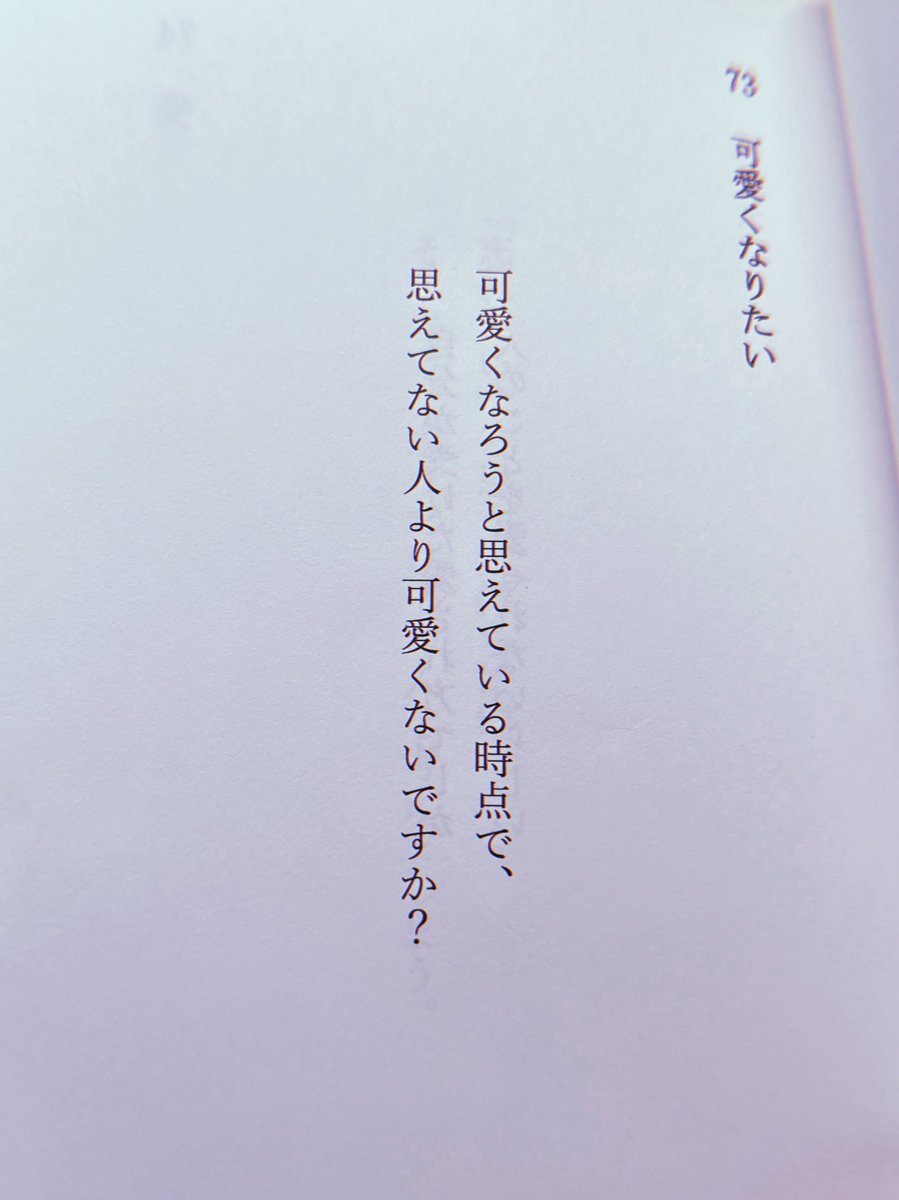 73 可愛くなりたい
可愛くなろうと思えている時点で、
思えてない人より可愛くないですか？